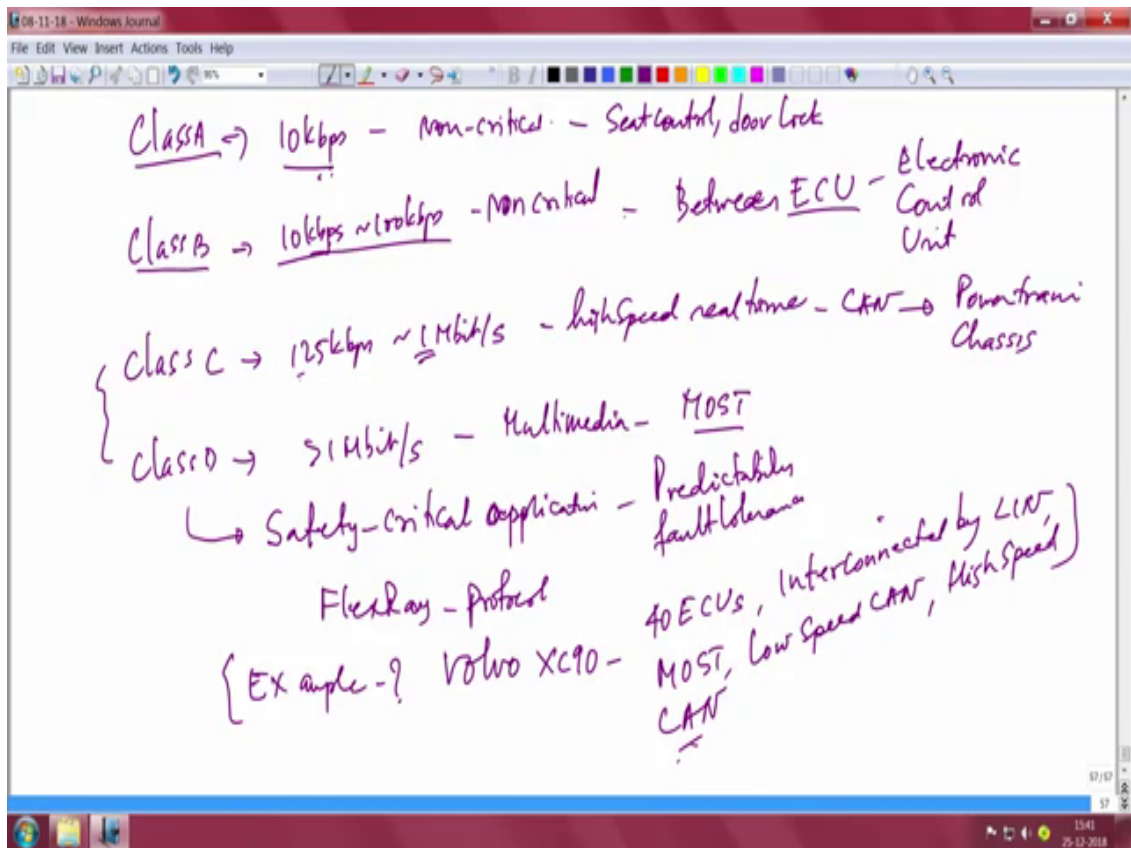 08-11-18 - Windows Journal
File Edit View Insert Actions Tools Help
Class A → 10kbps - Non-critical - Seat control, door lock
Class B → 10kbps ~ 100kbps - Non critical - Between ECU - Electronic
Control
Unit
Class C → 125kbps ~ 1Mbit/s - high Speed real time - CAN → Powertrain
Chassis
Class D → >1Mbit/s - Multimedia - MOST
↳ Safety-critical application - Predictability
fault tolerance
FlexRay - Protocol
{Example-? Volvo XC90 - 40 ECUs, Interconnected by LIN,
MOST, Low Speed CAN, High Speed}
CAN
57/57
57
15:41
25-12-2018